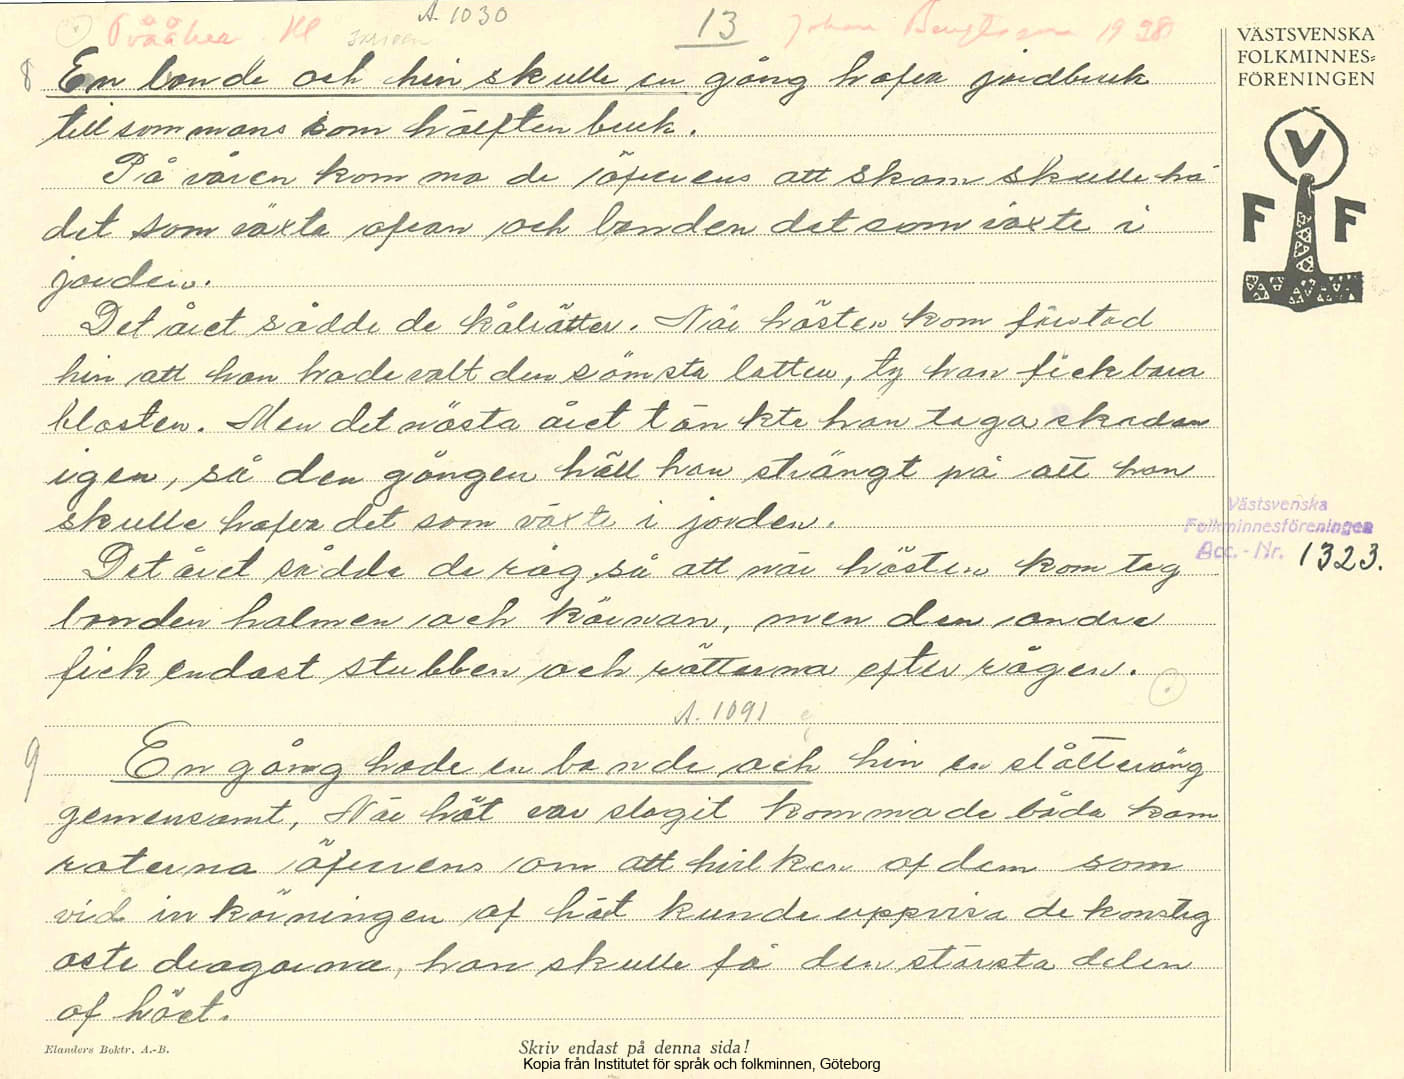 A. 1030
13
Tvååker Hl
Johan Bengtsson 1928
VÄSTSVENSKA
FOLKMINNES=
FÖRENINGEN
V
F F
8 En bonde och hin skulle en gång hafva jordbruk
tillsommans som hälften bruk.
På våren komma de öfverens att skam skulle ha
det som växta ofvan och bonden det som växte i
jorden.
Det året sådde de kålrötter. När hösten kom förstod
hin att han hade valt den sömsta lotten, ty han fick bara
blasten. Men det nästa året tänkte han taga skadan
igen, så den gången höll han strängt på att han
skulle hafva det som växte i jorden.
Det året sådde de råg, så att när hösten kom tog
bonden halmen och kärnan, men den andre
fick endast stubben och rötterna efter rågen.
A. 1091
9 En gång hade en bonde och hin en slåtteräng
gemensamt, När höt var slagit komma de båda kam
raterna öfverens om att hvilken af dem som
vid inkörningen af höet kunde uppvisa de konstig
aste dragarna, han skulle få den största delen
af höet.
Västsvenska
Folkminnesföreningen
Acc.-Nr. 1323.
Elanders Boktr. A.-B.
Skriv endast på denna sida!
Kopia från Institutet för språk och folkminnen, Göteborg